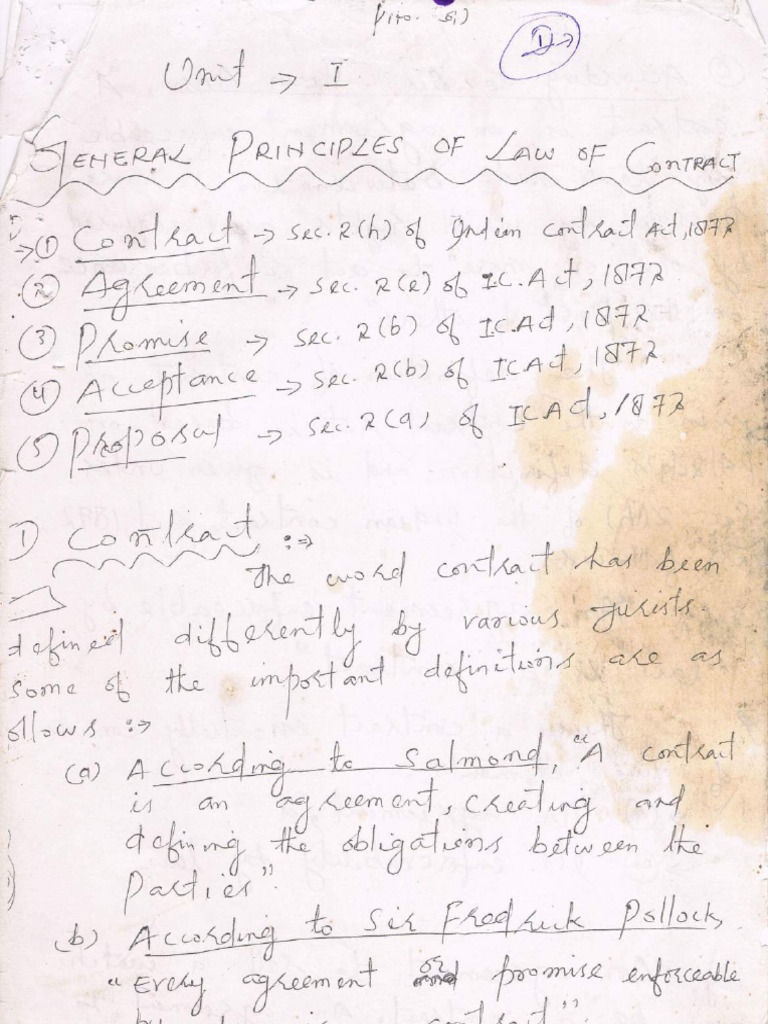 D→
Unit → I
GENERAL PRINCIPLES OF LAW OF CONTRACT
→① Contract → Sec. 2(h) of Indian contract Act, 1872
② Agreement → Sec. 2(e) of I.C. Act, 1872
③ Promise → Sec. 2(b) of I.C. Act, 1872
④ Acceptance → Sec. 2(b) of IC Act, 1872
⑤ Proposal → Sec. 2(a) of IC Act, 1872
1) Contract :→
The word contract has been
defined differently by various Jurists.
Some of the important definitions are as
ollows :→
(a) According to Salmond, "A contract
is an agreement, creating and
defining the obligations between the
Parties".
(b) According to Sir Fredrick Pollock,
"Every agreement or promise enforceable
by is contract".